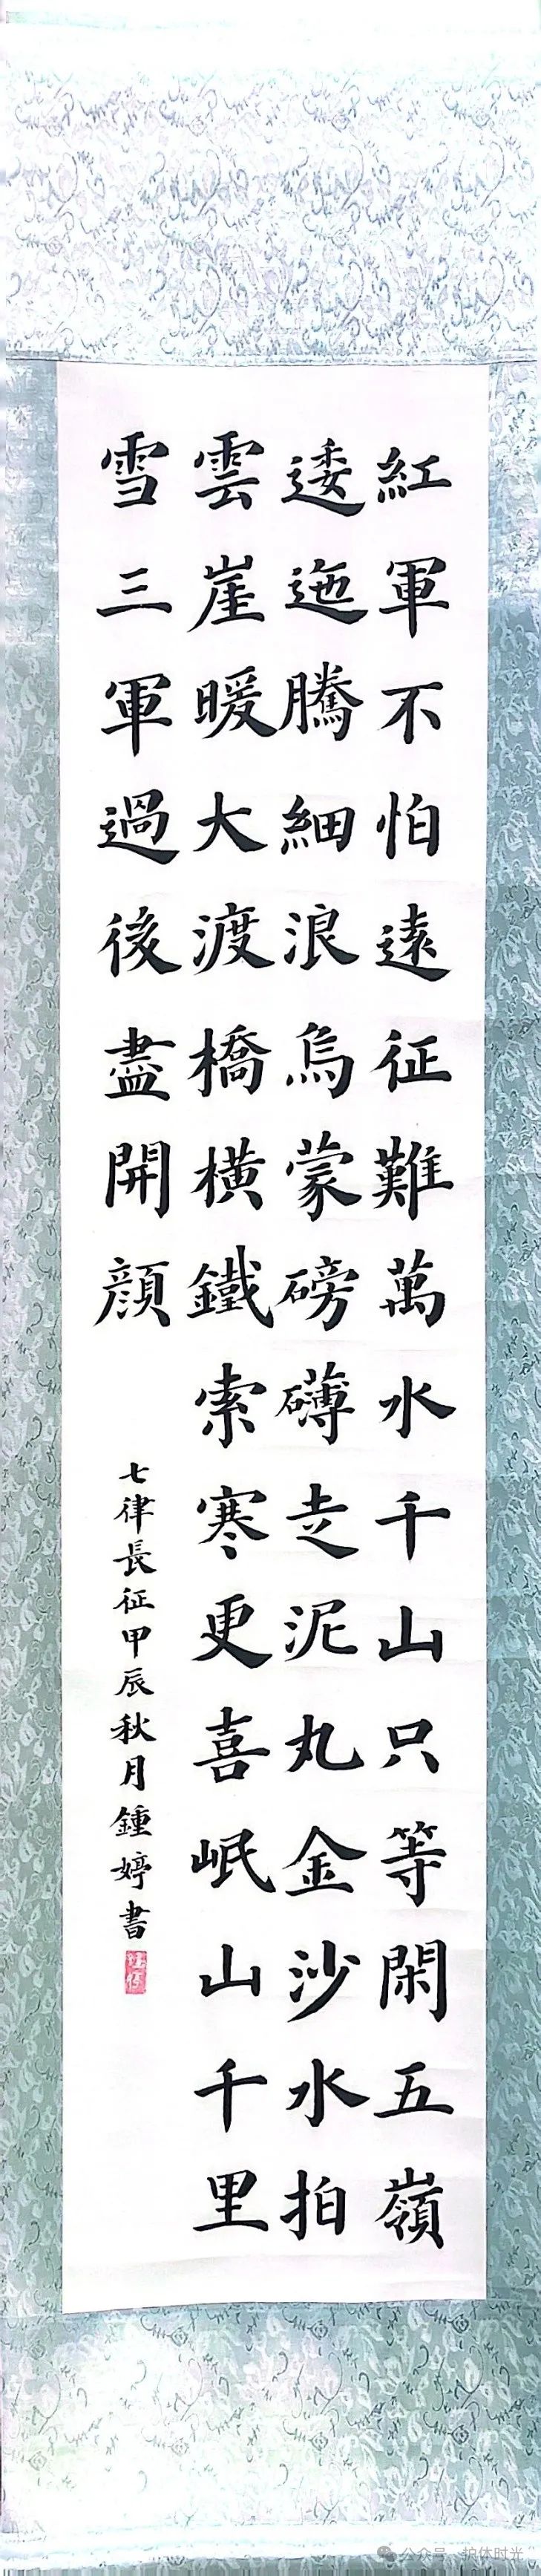 紅軍不怕遠征難萬水千山只等閑五嶺
逶迤騰細浪烏蒙磅礴走泥丸金沙水拍
雲崖暖大渡橋橫鐵索寒更喜岷山千里
雪三軍過後盡開顏
七律長征甲辰秋月鍾婷書
公众号·护体时光